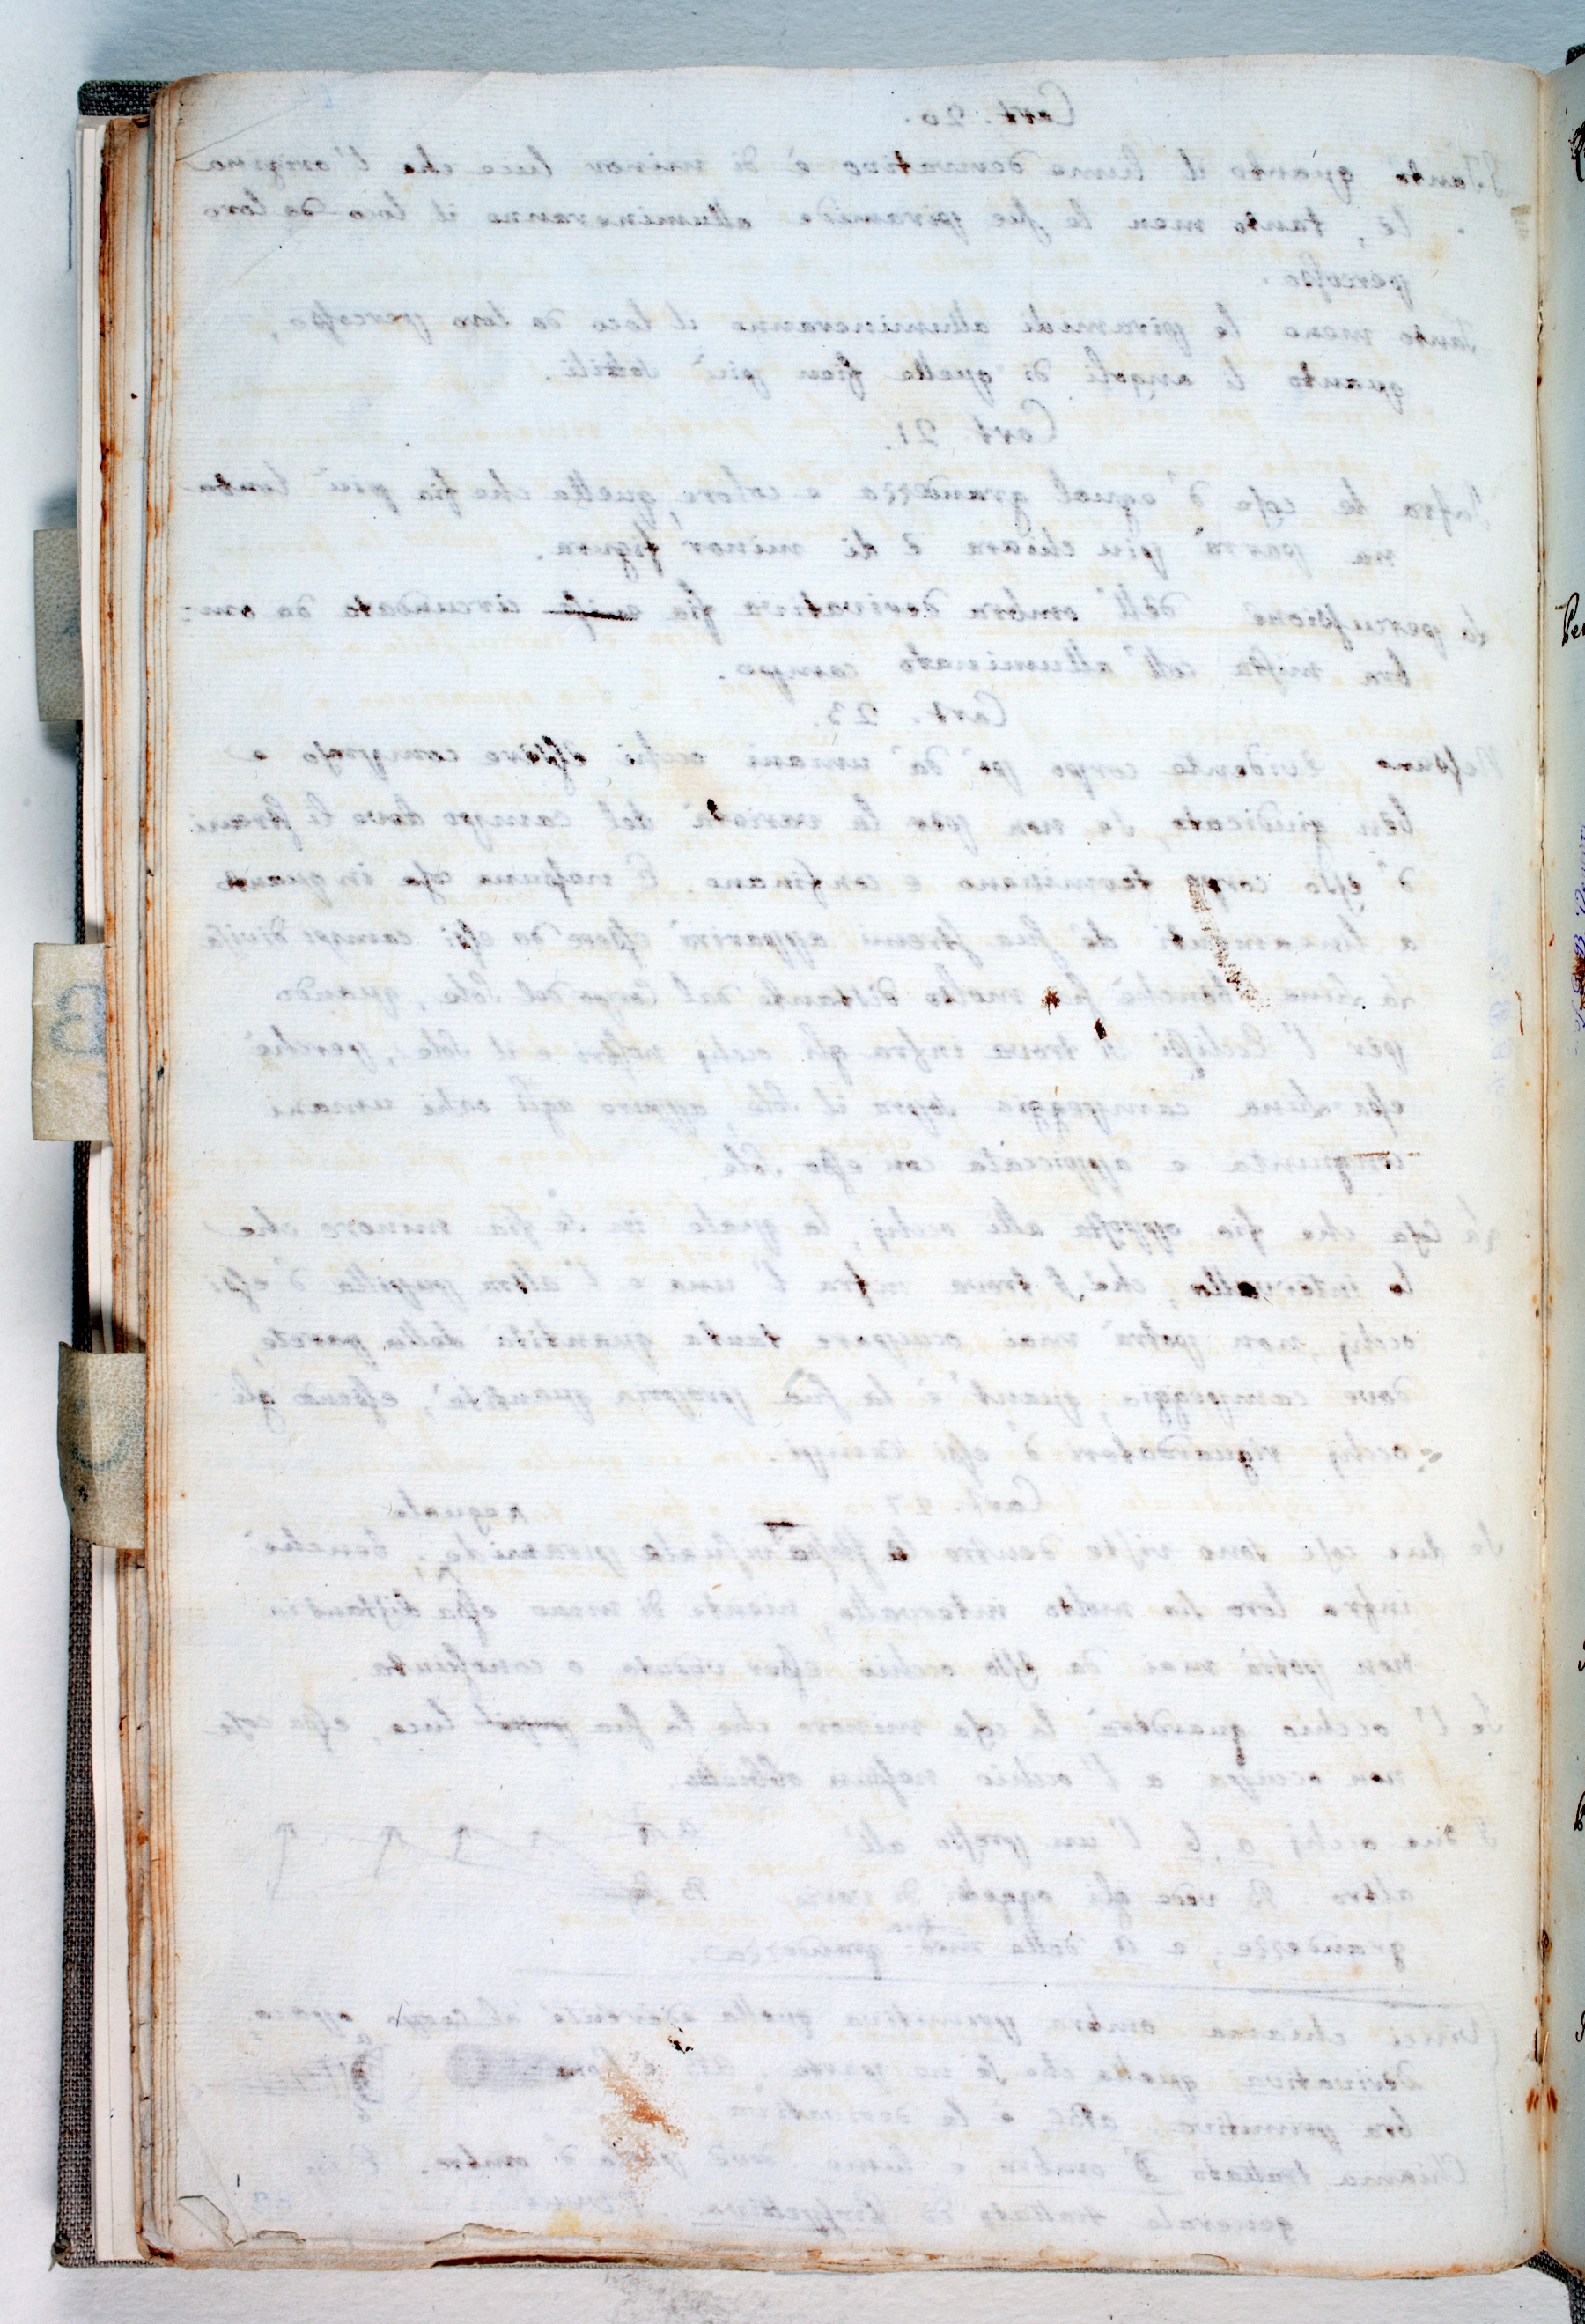 Cart. 20.
Tanto quanto il lume derivativo è di minor luce che l'origina
le, tanto men le sue piramide allumineranno il loco da loro
percosso.
Tanto meno le piramidi allumineranno il loco da loro percosso,
quanto li angoli di quelle fien più sottili.
Cart. 21.
Infra le cose d'equal grandezza e colore, quella che fia più lonta
na parrà più chiara e di minor figura.
La percussione dell'ombra derivativa fia circundata da om=
bra mista coll'alluminato campo.
Cart. 23.
Nessuno evidente corpo po da umani occhi essere compreso e
ben giudicato, se non per la varietà del campo dove li stremi
d'esso corpo terminano e confinano. E nessuna cosa in quanto
a lineamenti de sua stremi apparirà essere da essi campi divisa
La Luna benchè sia molto distante dal Corpo del Sole, quando
per l'Eclissi si trova infra gli occhj nostri e il Sole, perchè
essa Luna campeggia sopra il Sole, appare agli ochi umani
congiunta e appiccata con esso Sole.
La cosa che fia opposta alli occhj, la quale in se fia minore che
lo intervallo, che si trova infra l'una e l'altra pupilla d'essi
occhj, non potrà mai ocupare tanta quantità della parete,
dove campeggia, quant'è la sua propria quantità, essendo gli
occhj riguardatori d'essi campi.
Cart. 27
eguale
Se due cose sono viste dentro la piramide, benchè
infra loro sia molto intervallo, niente di meno essa distantia
non potrà mai da esso occhio esser veduta o conosciuta.
Se l'occhio guarderà la cosa minore che la sua luce, essa cosa
non occupa a l'occhio nessun obbietto.
I due occhj a, b l'un presso all'
altro B vede gli oggetti di varie
grandezze, e A della med. grandezza.
a
B
Vinci chiama ombra primitiva quella aderente al Corpo opaco,
derivativa quella che se ne parte.
bra primitiva, è la derivativa
Chiama trattato d'ombra, e lume
generale trattato di Prospettiva.